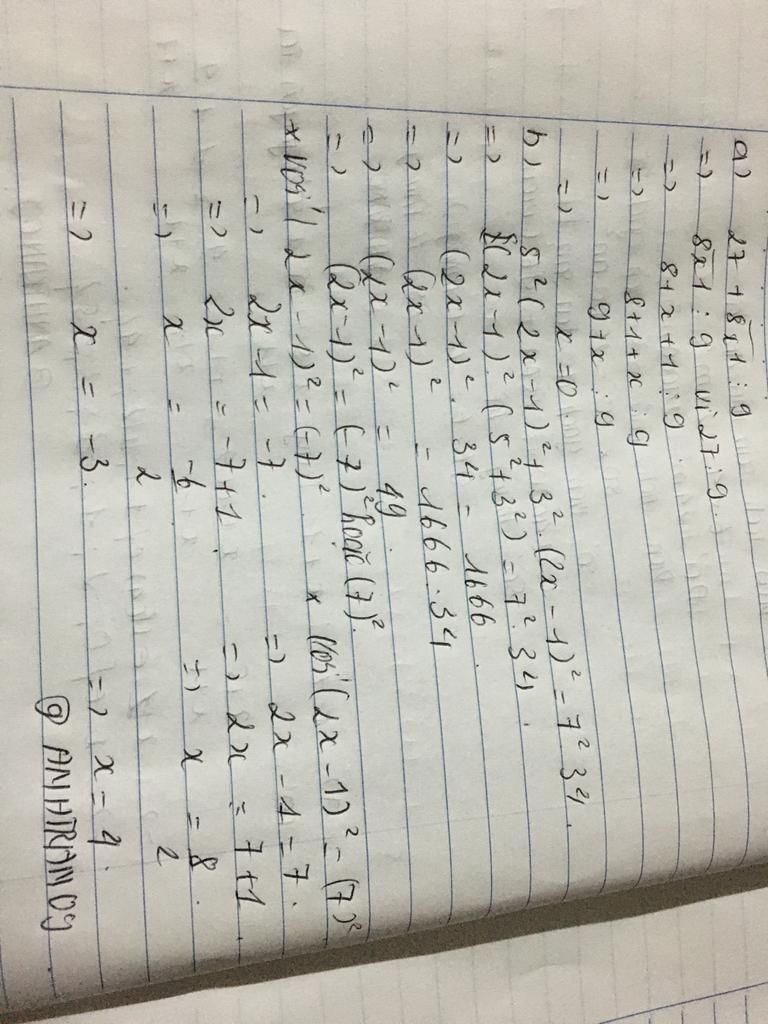 a) 27 + 8x1 ⋮ 9
=> 8x1 ⋮ 9 vì 27 ⋮ 9.
=> 8+x+1 ⋮ 9.
=> 8+1+x ⋮ 9
=> 9+x ⋮ 9
=> x=0.
b) 5² (2x-1)² + 3². (2x-1)² = 7² 34.
=> (2x-1)² (5²+3²) = 7². 34.
=> (2x-1)². 34 = 1666.
=> (2x-1)² = 1666:34
=> (2x-1)² = 49.
=> (2x-1)² = (-7)² hoặc (7)².
* Với (2x-1)² = (-7)²
=> 2x-1 = -7.
=> 2x = -7+1.
=> x = -6/2
=> x = -3.
* Với (2x-1)² = (7)²
=> 2x-1 = 7.
=> 2x = 7+1.
=> x = 8/2.
=> x = 4.
@ ANHTRAM09